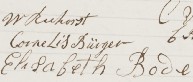 W Kuhorst
Cornelis Bürger
Elisabeth Bode